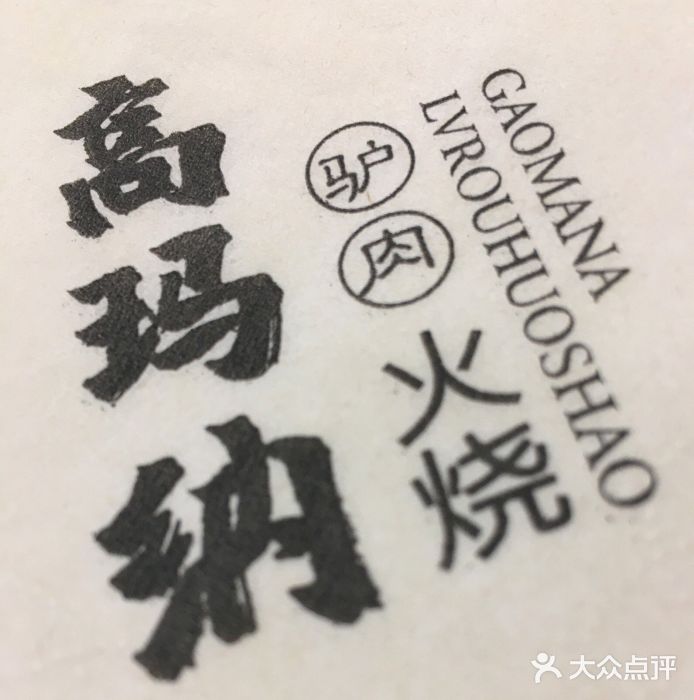 高玛纳
驴肉火烧
GAOMANA
LVROUHUOSHAO
大众点评